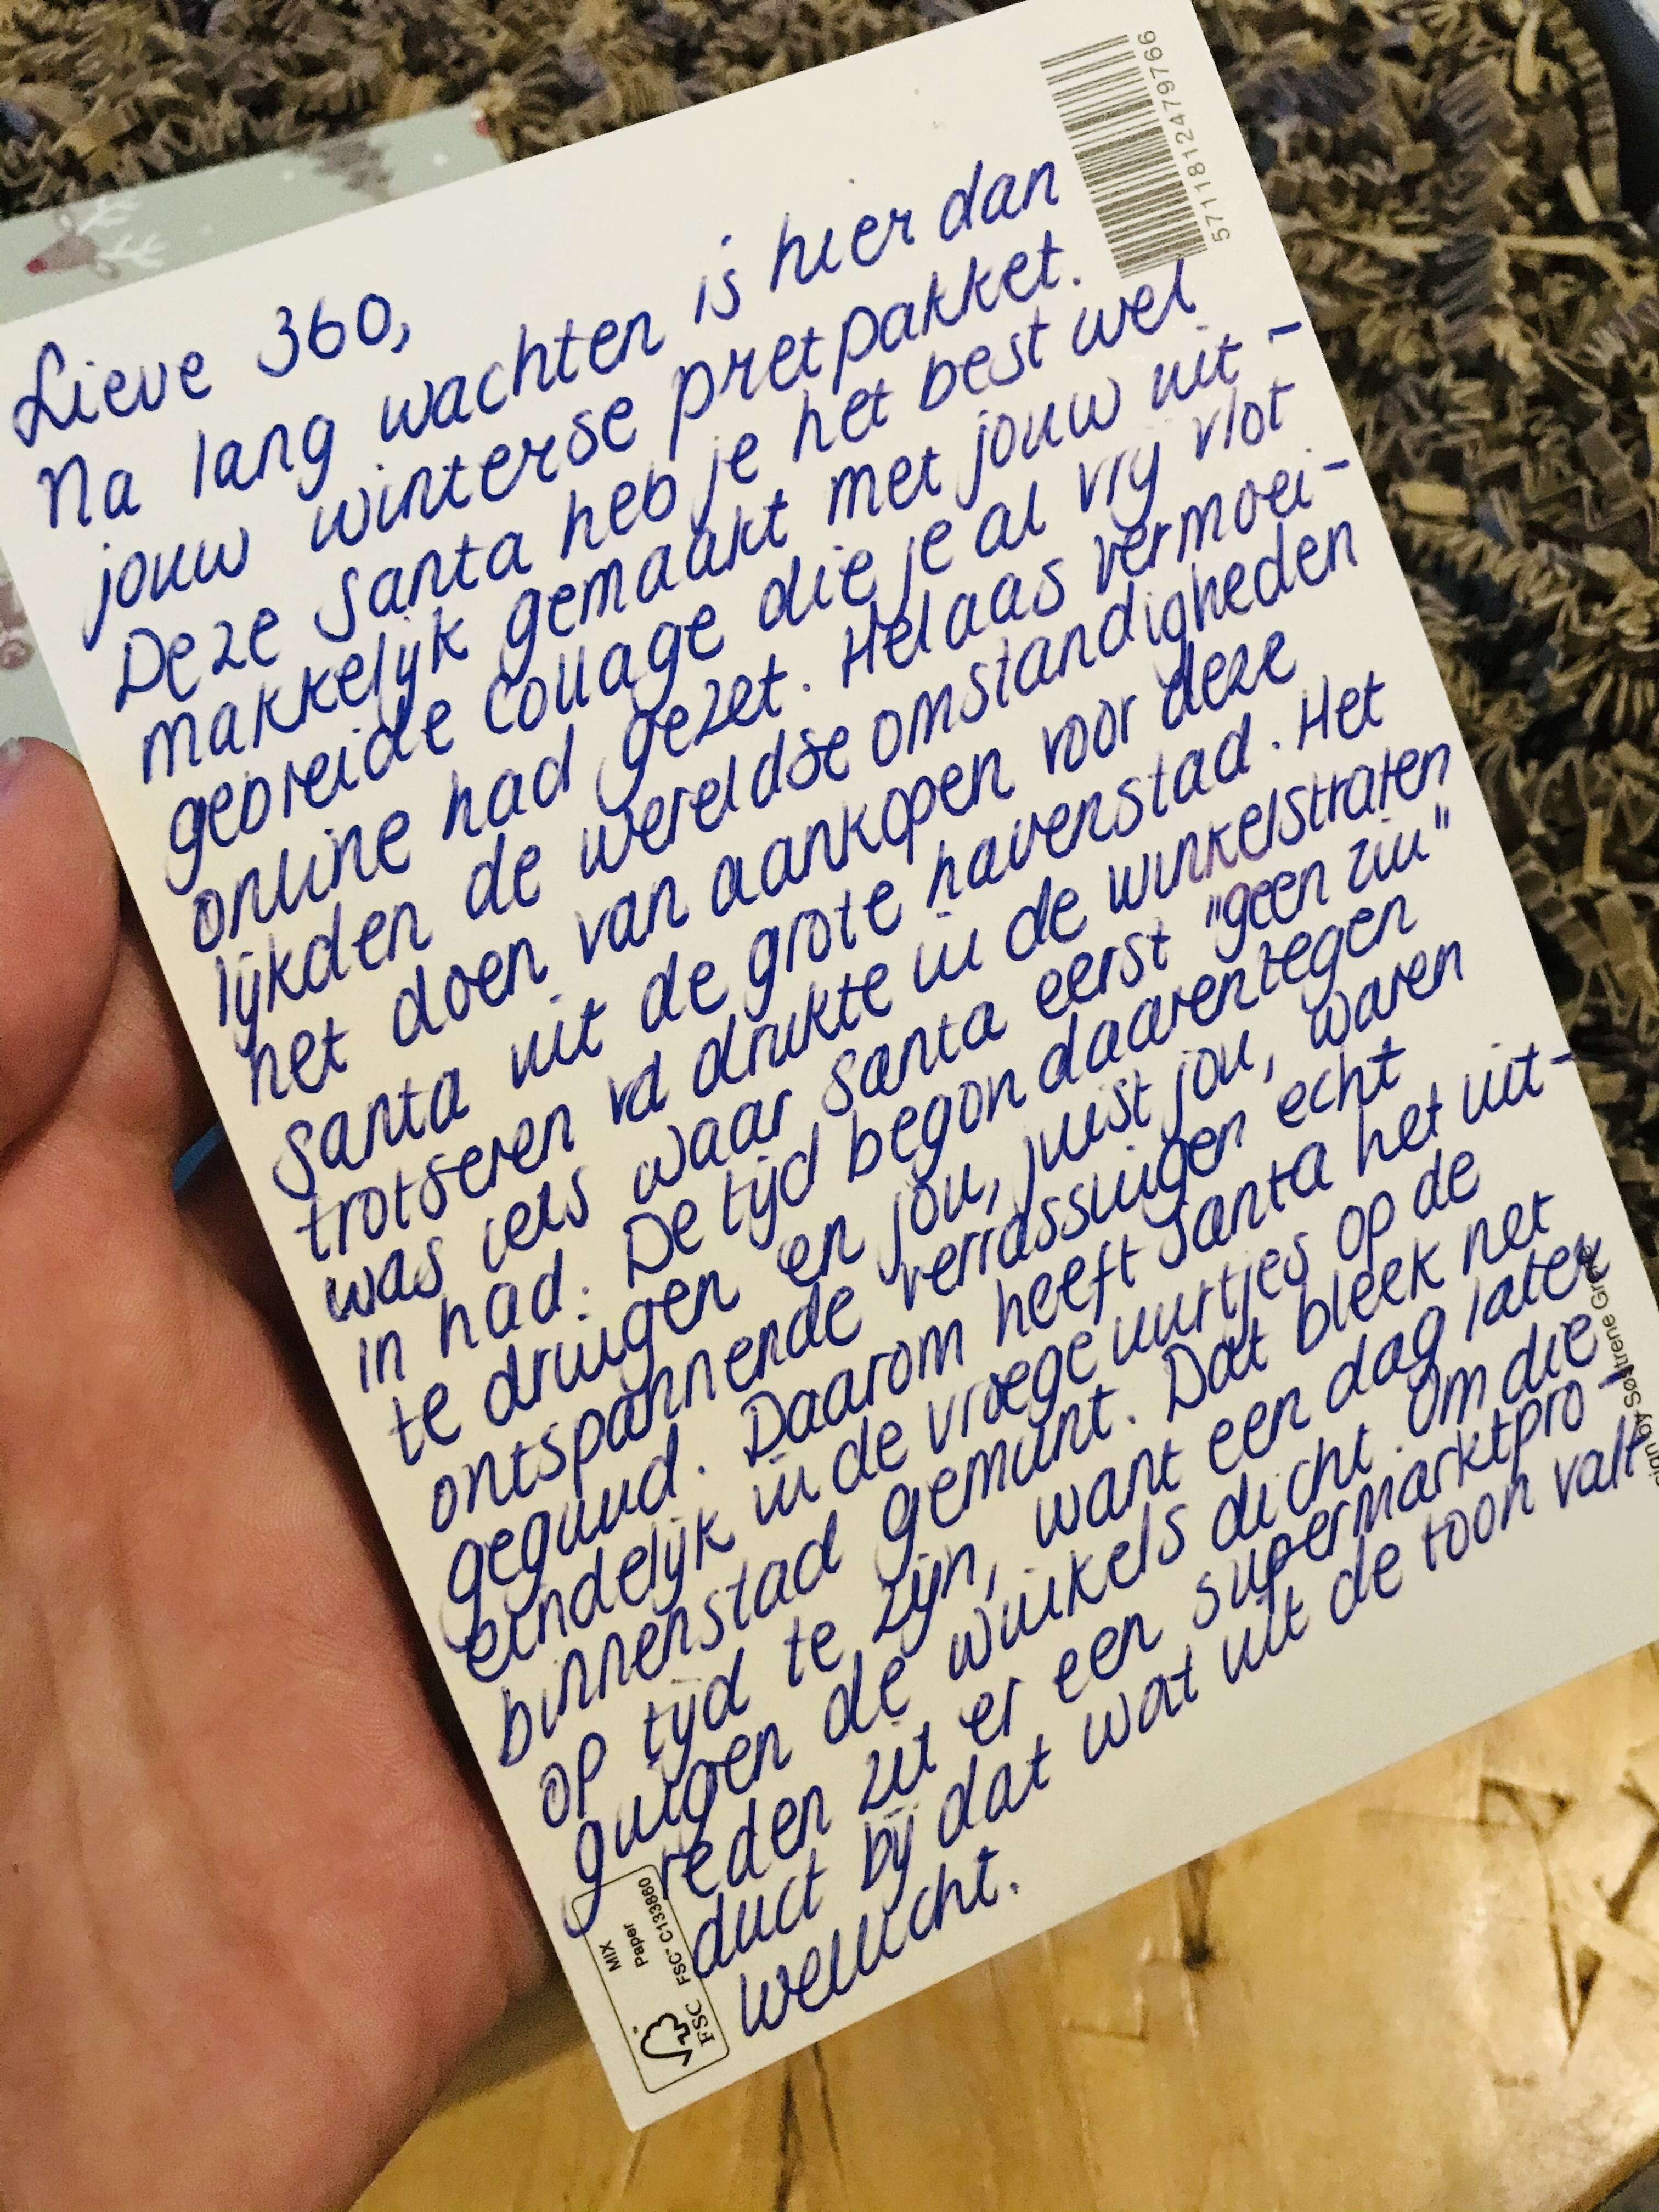 Lieve 360,
Na lang wachten is hier dan
jouw winterse pretpakket.
Deze santa heb je het best wel
makkelijk gemaakt met jouw uit-
gebreide collage die je al vrij vlot
online had gezet. Helaas vermoei-
lijkden de wereldse omstandigheden
het doen van aankopen voor deze
santa uit de grote havenstad. Het
trotseren vd drukte in de winkelstraten
was iets waar santa eerst "geen zin"
in had. De tijd begon daarentegen
te dringen en jou, juist jou, waren
ontspannende verrassingen echt
gegund. Daarom heeft santa het uit-
eindelijk in de vroege uurtjes op de
binnenstad gemunt. Dat bleek net
op tijd te zijn, want een dag later
gingen de winkels dicht. Om die
reden zit er een supermarktpro-
duct bij dat wat uit de toon valt
wellicht.
5718124 79766
MIX
Paper
FSC® C133860
FSC